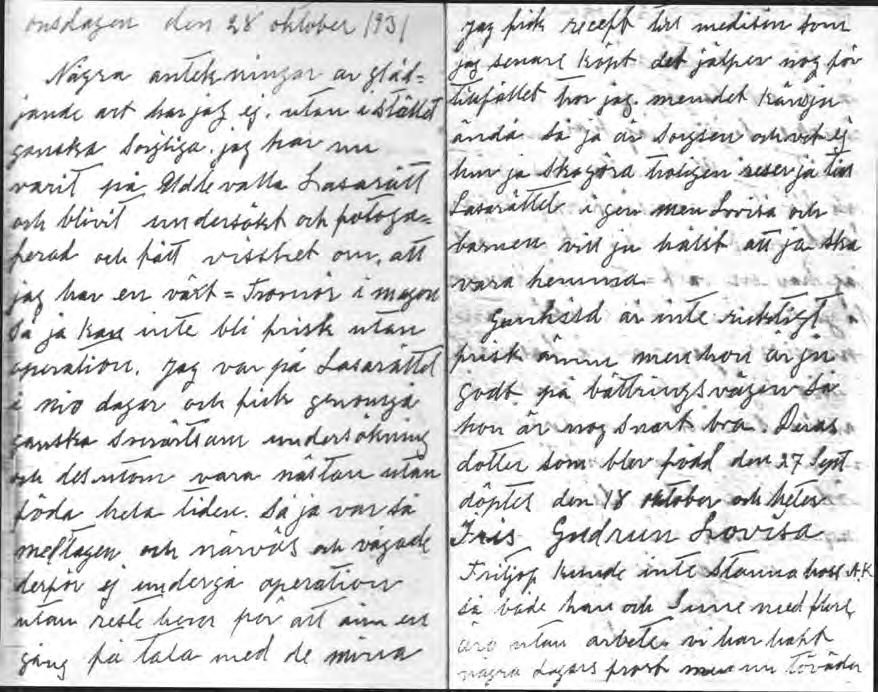 onsdagen den 28 oktober 1931
Några anteckningar av gläd=
jande art har jag ej, utan istället
ganska sorgliga, jag har nu
varit på Uddevalla Lasarätt
och blivit undersökt och fotogra=
ferad och fått visshet om, att
jag har en växt = Tromör i magen
så ja kan inte bli frisk utan
operation. Jag var på Lasarättet
i nio dagar och fick genomgå
ganska smärtsam undersökning
och desutom vara nästan utan
föda hela tiden. Så ja var så
medtagen och närvös och vågade
derför ej undergå operation
utan reste hem för att ännu en
gång få tala med de minna
Jag fick recept till medisin som
jag senare köpt det jälper nog för
tillfället tror jag. men det känsju
ändå så ja är sorgsen och vet ej
hur ja ska göra troligen reser ja till
Lasarättet igen men Lovisa och
barnen vill ju hälst att ja ska
vara hemma
Gunhild är inte ricktigt
frisk ännu men hon är ju
godt på bättringsvägen så
hon är nog snart bra. Deras
dotter som blev född den 27 Sept
döptes den 18 oktober och heter
Iris Gudrun Lovisa
Fritjof kunde inte stanna hoss A.K
så både han och Sune med flere
äro utan arbete. vi har haft
några dagars frost men nu töväder